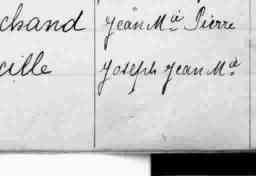 chand Jean M.ie Pierre
cille Joseph Jean M.ie